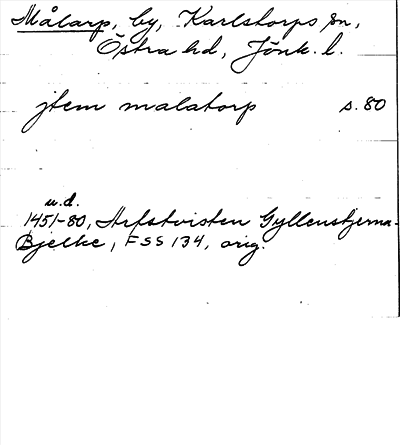 Målarp, by, Karlstorps sn,
Östra hd, Jönk. l.
jtem malatorp s. 80
u.d.
1451-80, Arfstvisten Gyllenstjerna-
Bjelke, FSS 134, orig.